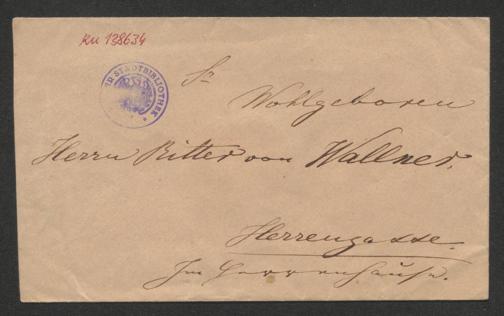 KU 138634
STADTBIBLIOTHEK
Sr
Wohlgeboren
Herrn Ritter von Wallner,
Herrengasse.
Im Herrenhause.